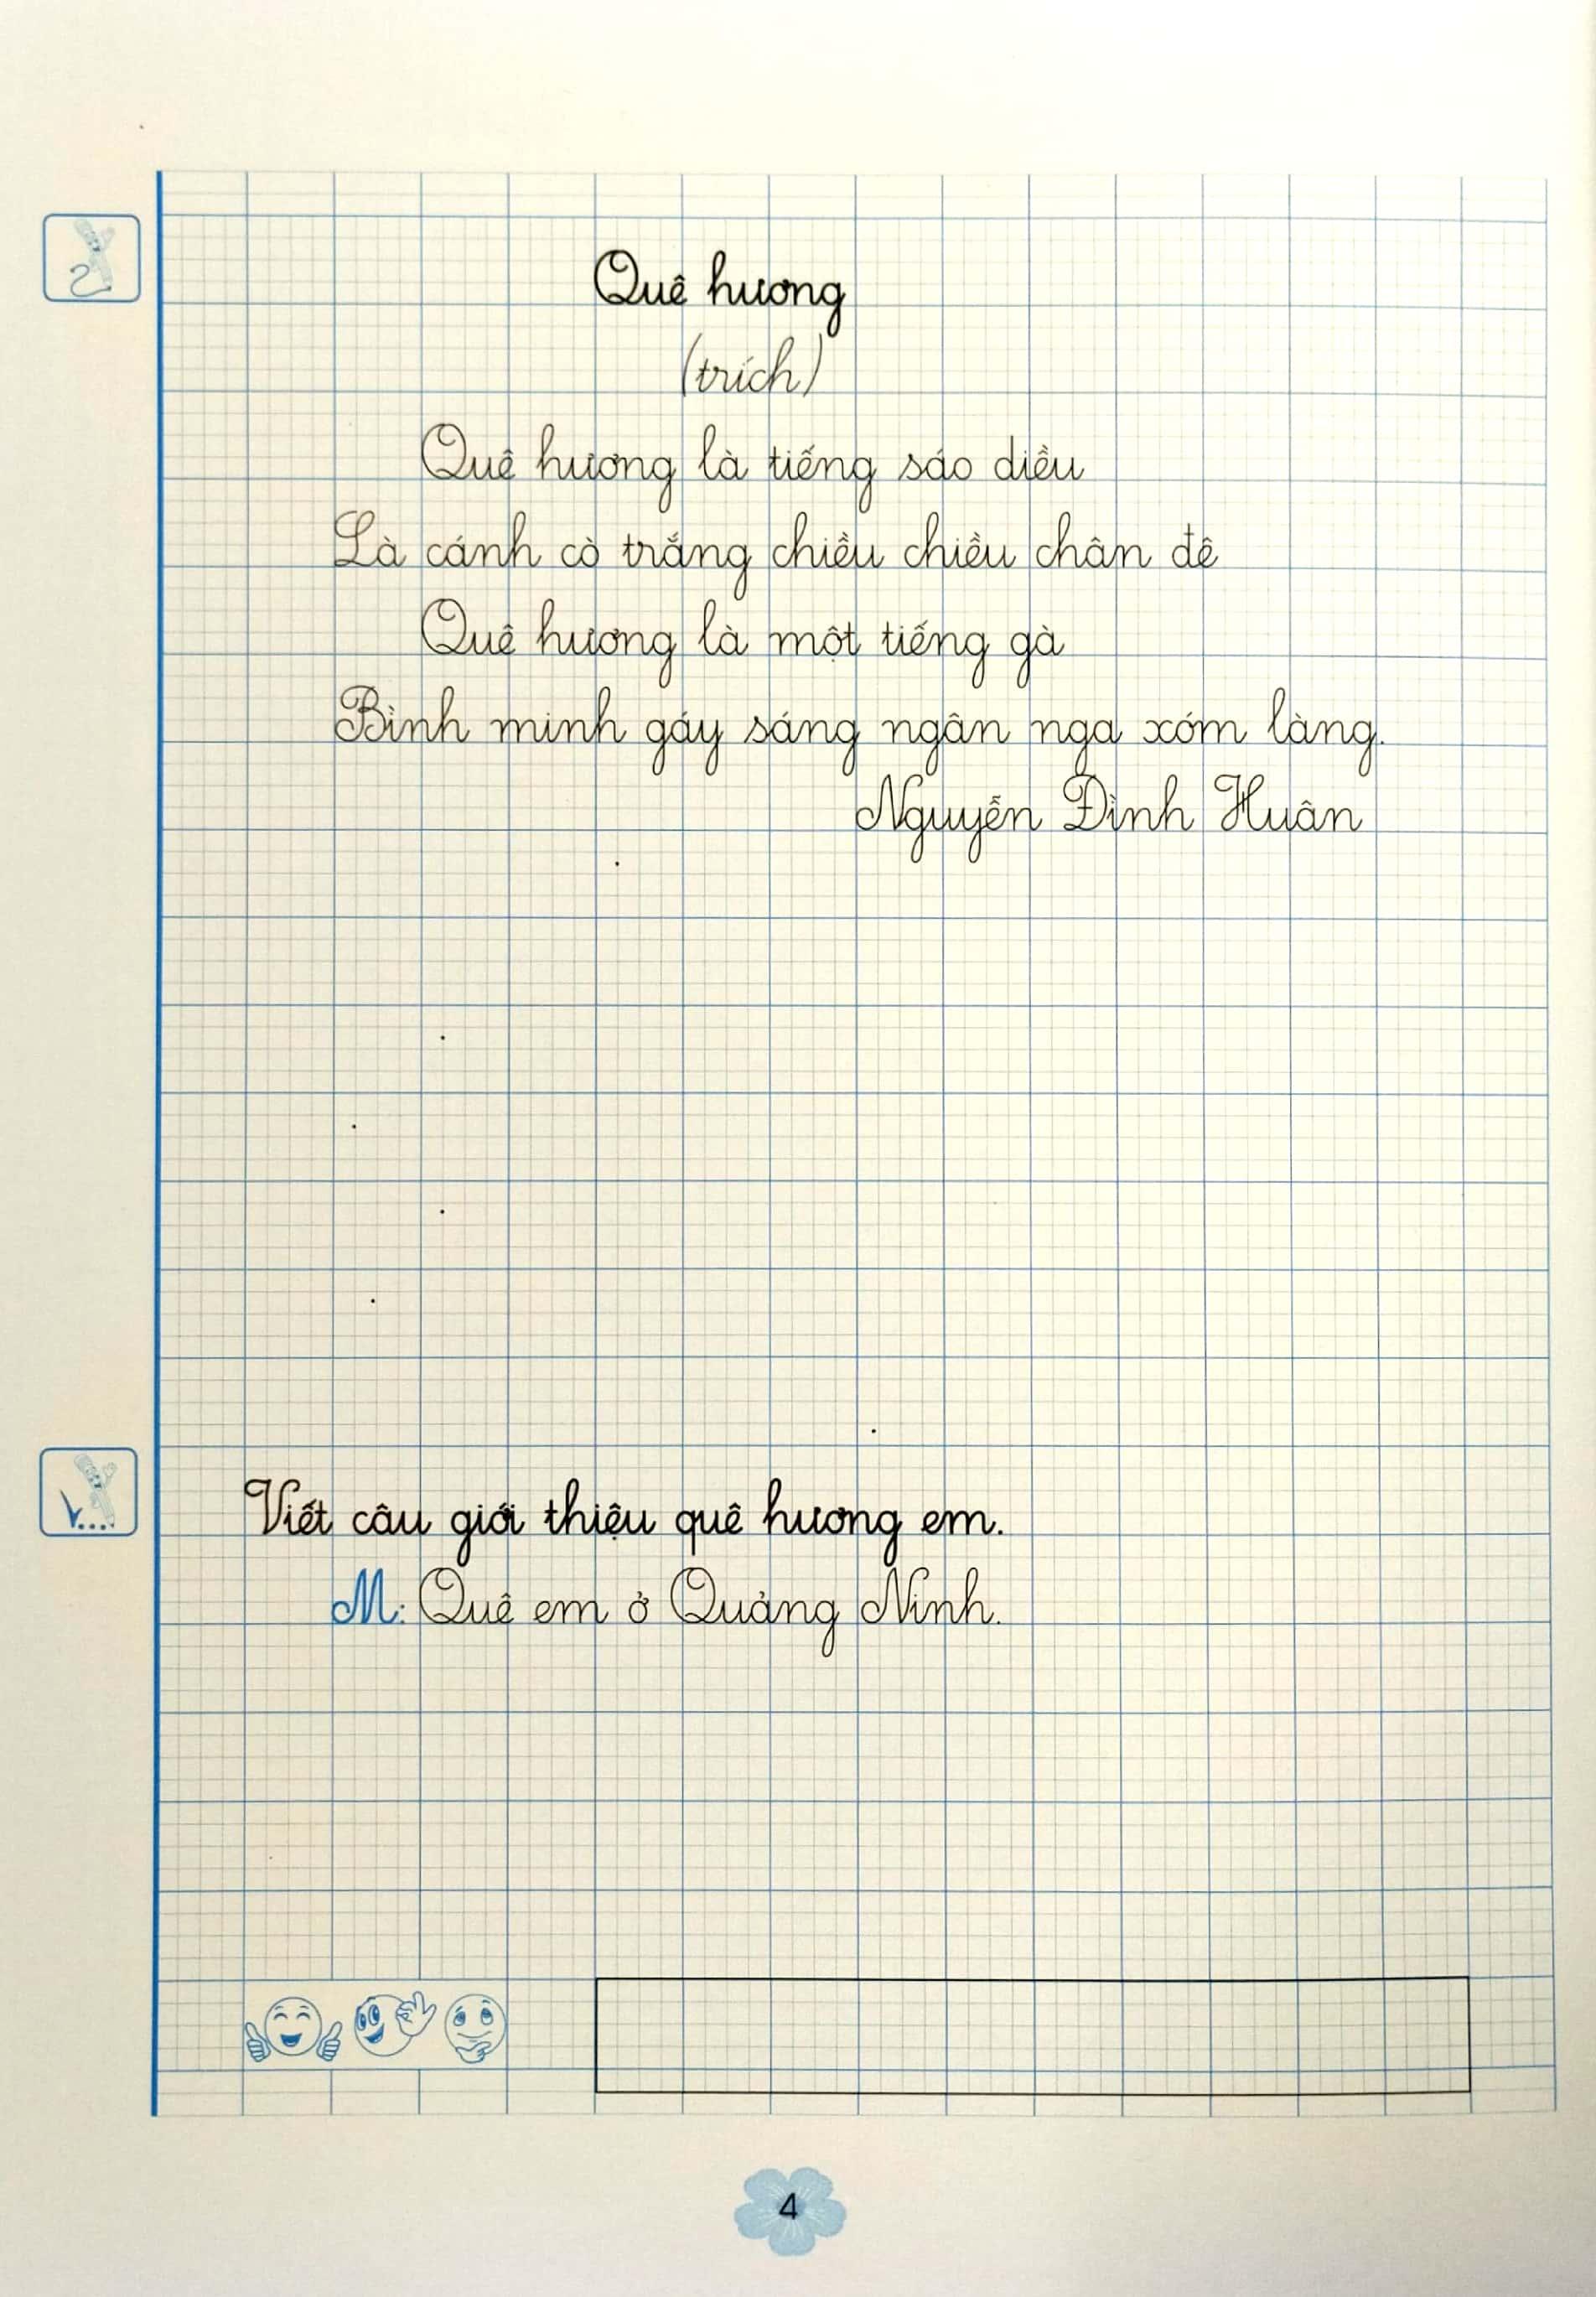 Quê hương
(trích)
Quê hương là tiếng sáo diều
Là cánh cò trắng chiều chiều chân đê
Quê hương là một tiếng gà
Bình minh gáy sáng ngân nga xóm làng.
Nguyễn Đình Huân
Viết câu giới thiệu quê hương em.
M: Quê em ở Quảng Ninh.
4